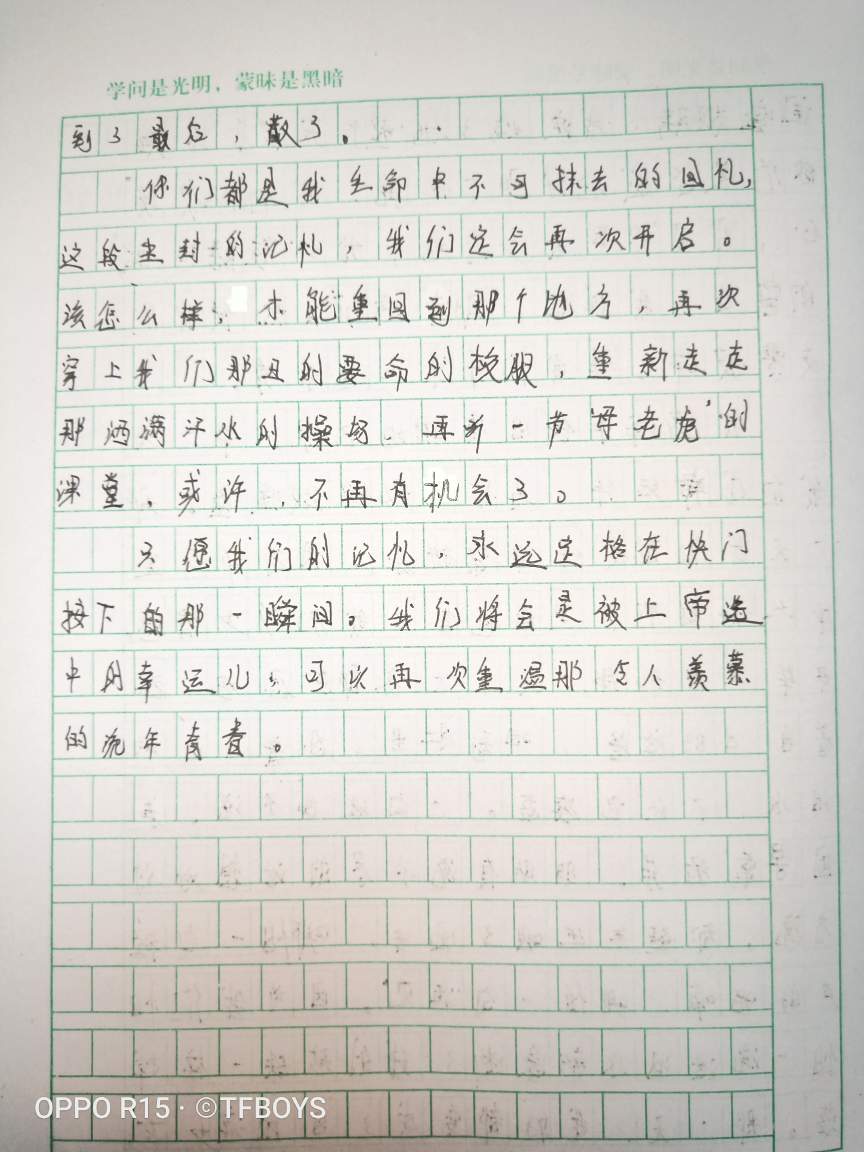 学问是光明，蒙昧是黑暗
到了最后，散了。
你们都是我生命中不可抹去的回忆，
这段尘封的记忆，我们定会再次开启。
该怎么样，才能重回到那个地方，再次
穿上我们那丑的要命的校服，重新走走
那洒满汗水的操场，再听一节“母老虎”的
课堂，或许，不再有机会了。
只愿我们的记忆，永远定格在快门
按下的那一瞬间。我们将会是被上帝选
中的幸运儿，可以再次重温那令人羡慕
的流年青春。
OPPO R15 · ©TFBOYS